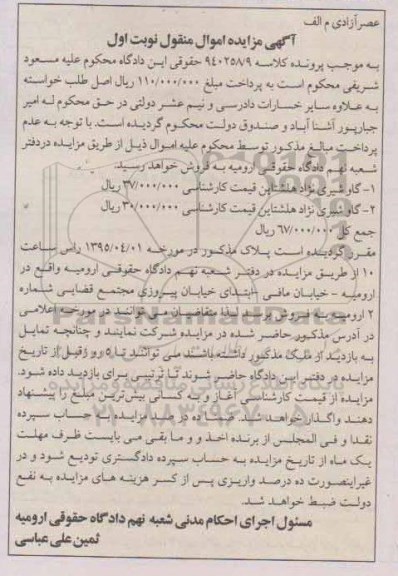 عصرآزادی م الف
آگهی مزایده اموال منقول نوبت اول
به موجب پرونده کلاسه ۹۴۰۲۵۸/۹ حقوقی این دادگاه محکوم علیه مسعود
شریفی محکوم است به پرداخت مبلغ ۱۱۰/۰۰۰/۰۰۰ ریال اصل طلب خواسته
به علاوه سایر خسارات دادرسی و نیم عشر دولتی در حق محکوم له امیر
جبارپور آشنا آباد و صندوق دولت محکوم گردیده است. با توجه به عدم
پرداخت مبالغ مذکور توسط محکوم علیه اموال ذیل از طریق مزایده دردفتر
شعبه نهم دادگاه حقوقی ارومیه به فروش خواهد رسید.
۱- گاو شیری نژاد هلشتاین قیمت کارشناسی ۳۷/۰۰۰/۰۰۰ ریال
۲- گاو شیری نژاد هلشتاین قیمت کارشناسی ۳۰/۰۰۰/۰۰۰ ریال
جمع کل ۶۷/۰۰۰/۰۰۰ ریال
مقرر گردیده است پلاک مذکور در مورخه ۱۳۹۵/۰۴/۰۱ راس ساعت
۱۰ از طریق مزایده در دفتر شعبه نهم دادگاه حقوقی ارومیه واقع در
ارومیه - خیابان مافی - ابتدای خیابان پیروزی مجتمع قضایی شماره
۲ ارومیه به فروش برسد. لذا متقاضیان می توانند در مورخه اعلامی
در آدرس مذکور حاضر شده در مزایده شرکت نمایند و چنانچه تمایل
به بازدید از ملک مذکور داشته باشند می توانند تا ۵ روز قبل از تاریخ
مزایده در دفتر این دادگاه حاضر شوند تا ترتیبی برای بازدید داده شود.
مزایده از قیمت کارشناسی آغاز و به کسانی بیش‌ترین مبلغ را پیشنهاد
دهند واگذار خواهد شد. ضمنا ده درصد مزایده به حساب سپرده
نقدا و فی المجلس از برنده اخذ و و ما بقی می بایست ظرف مهلت
یک ماه از تاریخ مزایده به حساب سپرده دادگستری تودیع شود و در
غیراینصورت ده درصد واریزی پس از کسر هزینه های مزایده به نفع
دولت ضبط خواهد شد.
مسئول اجرای احکام مدنی شعبه نهم دادگاه حقوقی ارومیه
ثمین علی عباسی
ParsNamadData
پایگاه اطلاع رسانی مناقصه و مزایده
۰۲۱-۸۸۳۴۹۶۷۰-۵